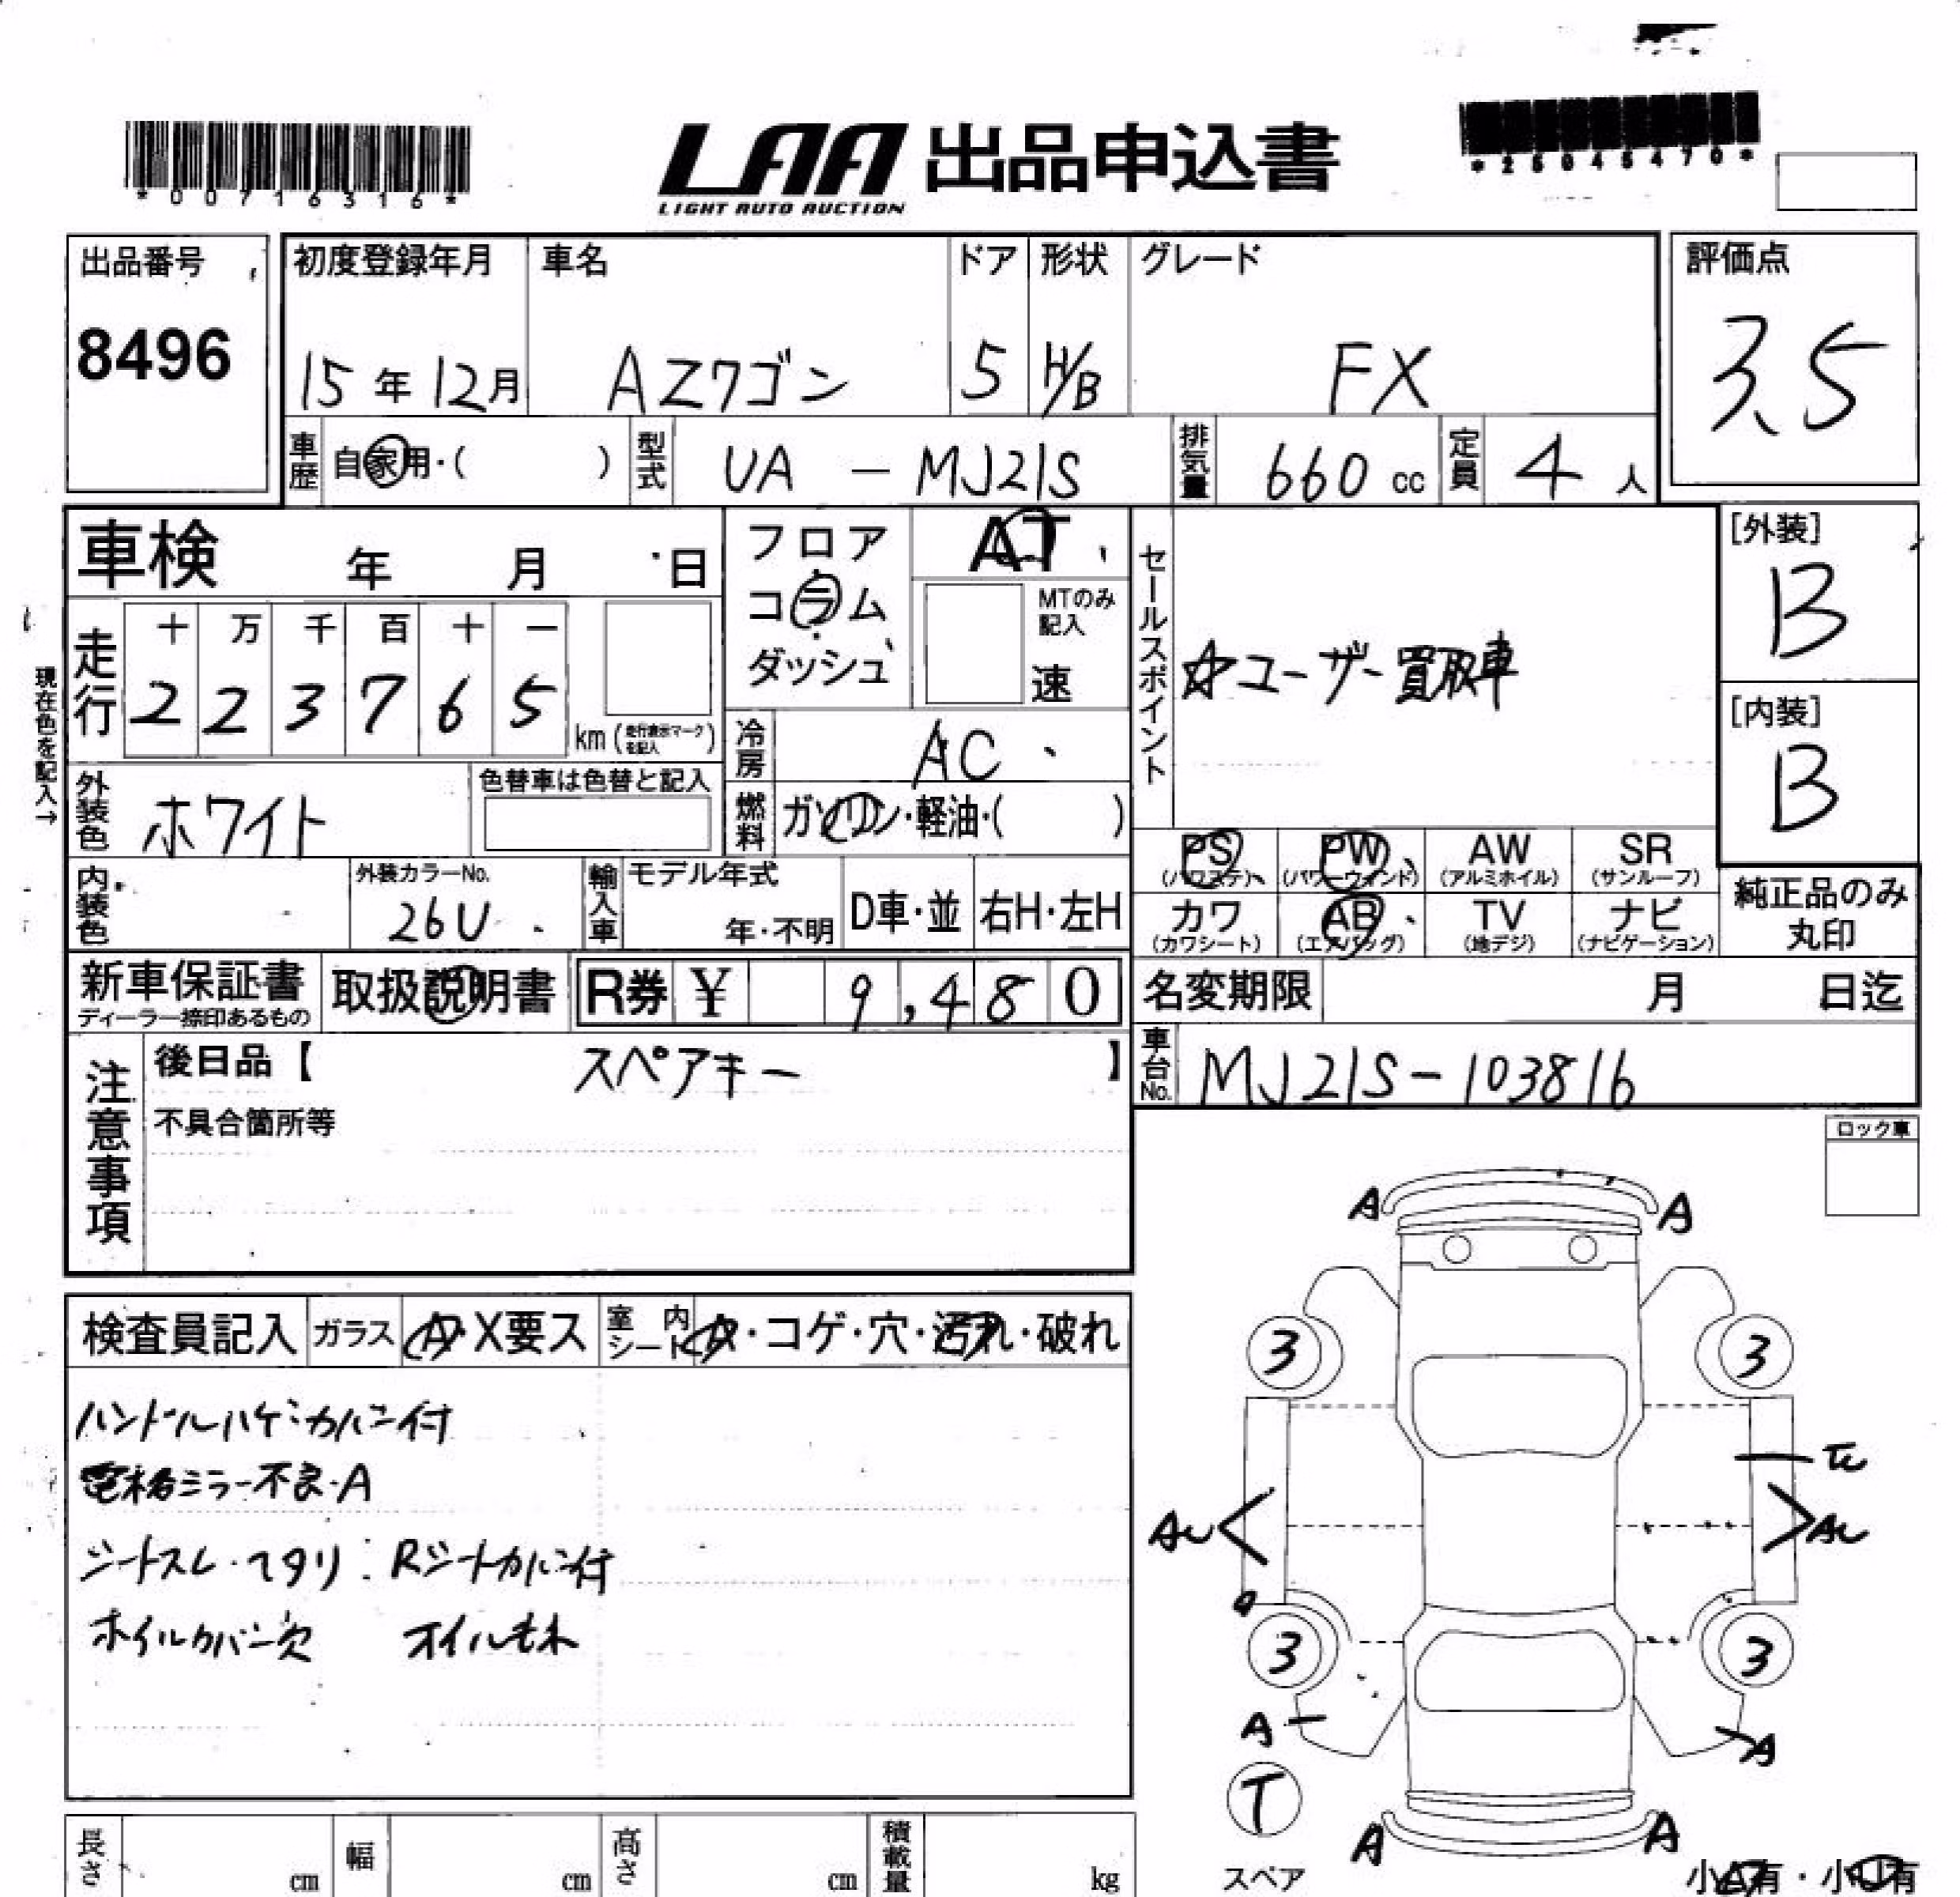 *00716316*
LAA 出品申込書
LIGHT AUTO AUCTION
*25045470*
出品番号
8496
初度登録年月
15年12月
車名
AZワゴン
ドア
5
形状
H/B
グレード
FX
評価点
3.5
車歴
自家用・( )
型式
UA - MJ21S
排気量
660 cc
定員
4 人
車検 年 月 日
フロア
コラム
ダッシュ
AT
MTのみ記入
速
セールスポイント
☆ユーザー買取車
[外装]
B
[内装]
B
現在色を記入→
走行
十 万 千 百 十 一
2 2 3 7 6 5
km (走行表示マークを記入)
冷房
AC
外装色
ホワイト
色替車は色替と記入
燃料
ガソリン・軽油・( )
PS
(パワステ)
PW
(パワーウィンド)
AW
(アルミホイル)
SR
(サンルーフ)
カワ
(カワシート)
AB
(エアバッグ)
TV
(地デジ)
ナビ
(ナビゲーション)
純正品のみ
丸印
内装色
外装カラーNo.
26U
輸入車
モデル年式
年・不明
D車・並
右H・左H
新車保証書
ディーラー捺印あるもの
取扱説明書
R券 ¥ 9,480
名変期限 月 日迄
車台No.
MJ21S-103816
注意事項
後日品【 スペアキー 】
不具合箇所等
ロック車
検査員記入
ガラス
A・X要ス
室内
シート
A・コゲ・穴・汚れ・破れ
ハンドルハゲ:カバー付
電格ミラー不良・A
シートスレ・ヘタリ:Rシートカバー付
ホイルカバー欠 オイルモレ
A A
3 3
AU AU
3 3
A A
T
スペア
A A
小A有・小U有
長さ cm
幅 cm
高さ cm
積載量 kg